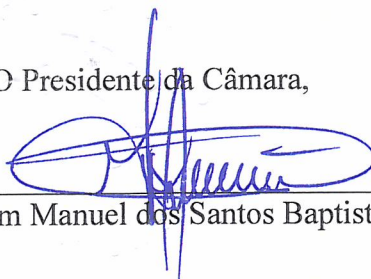 O Presidente da Câmara,
m Manuel dos Santos Baptist